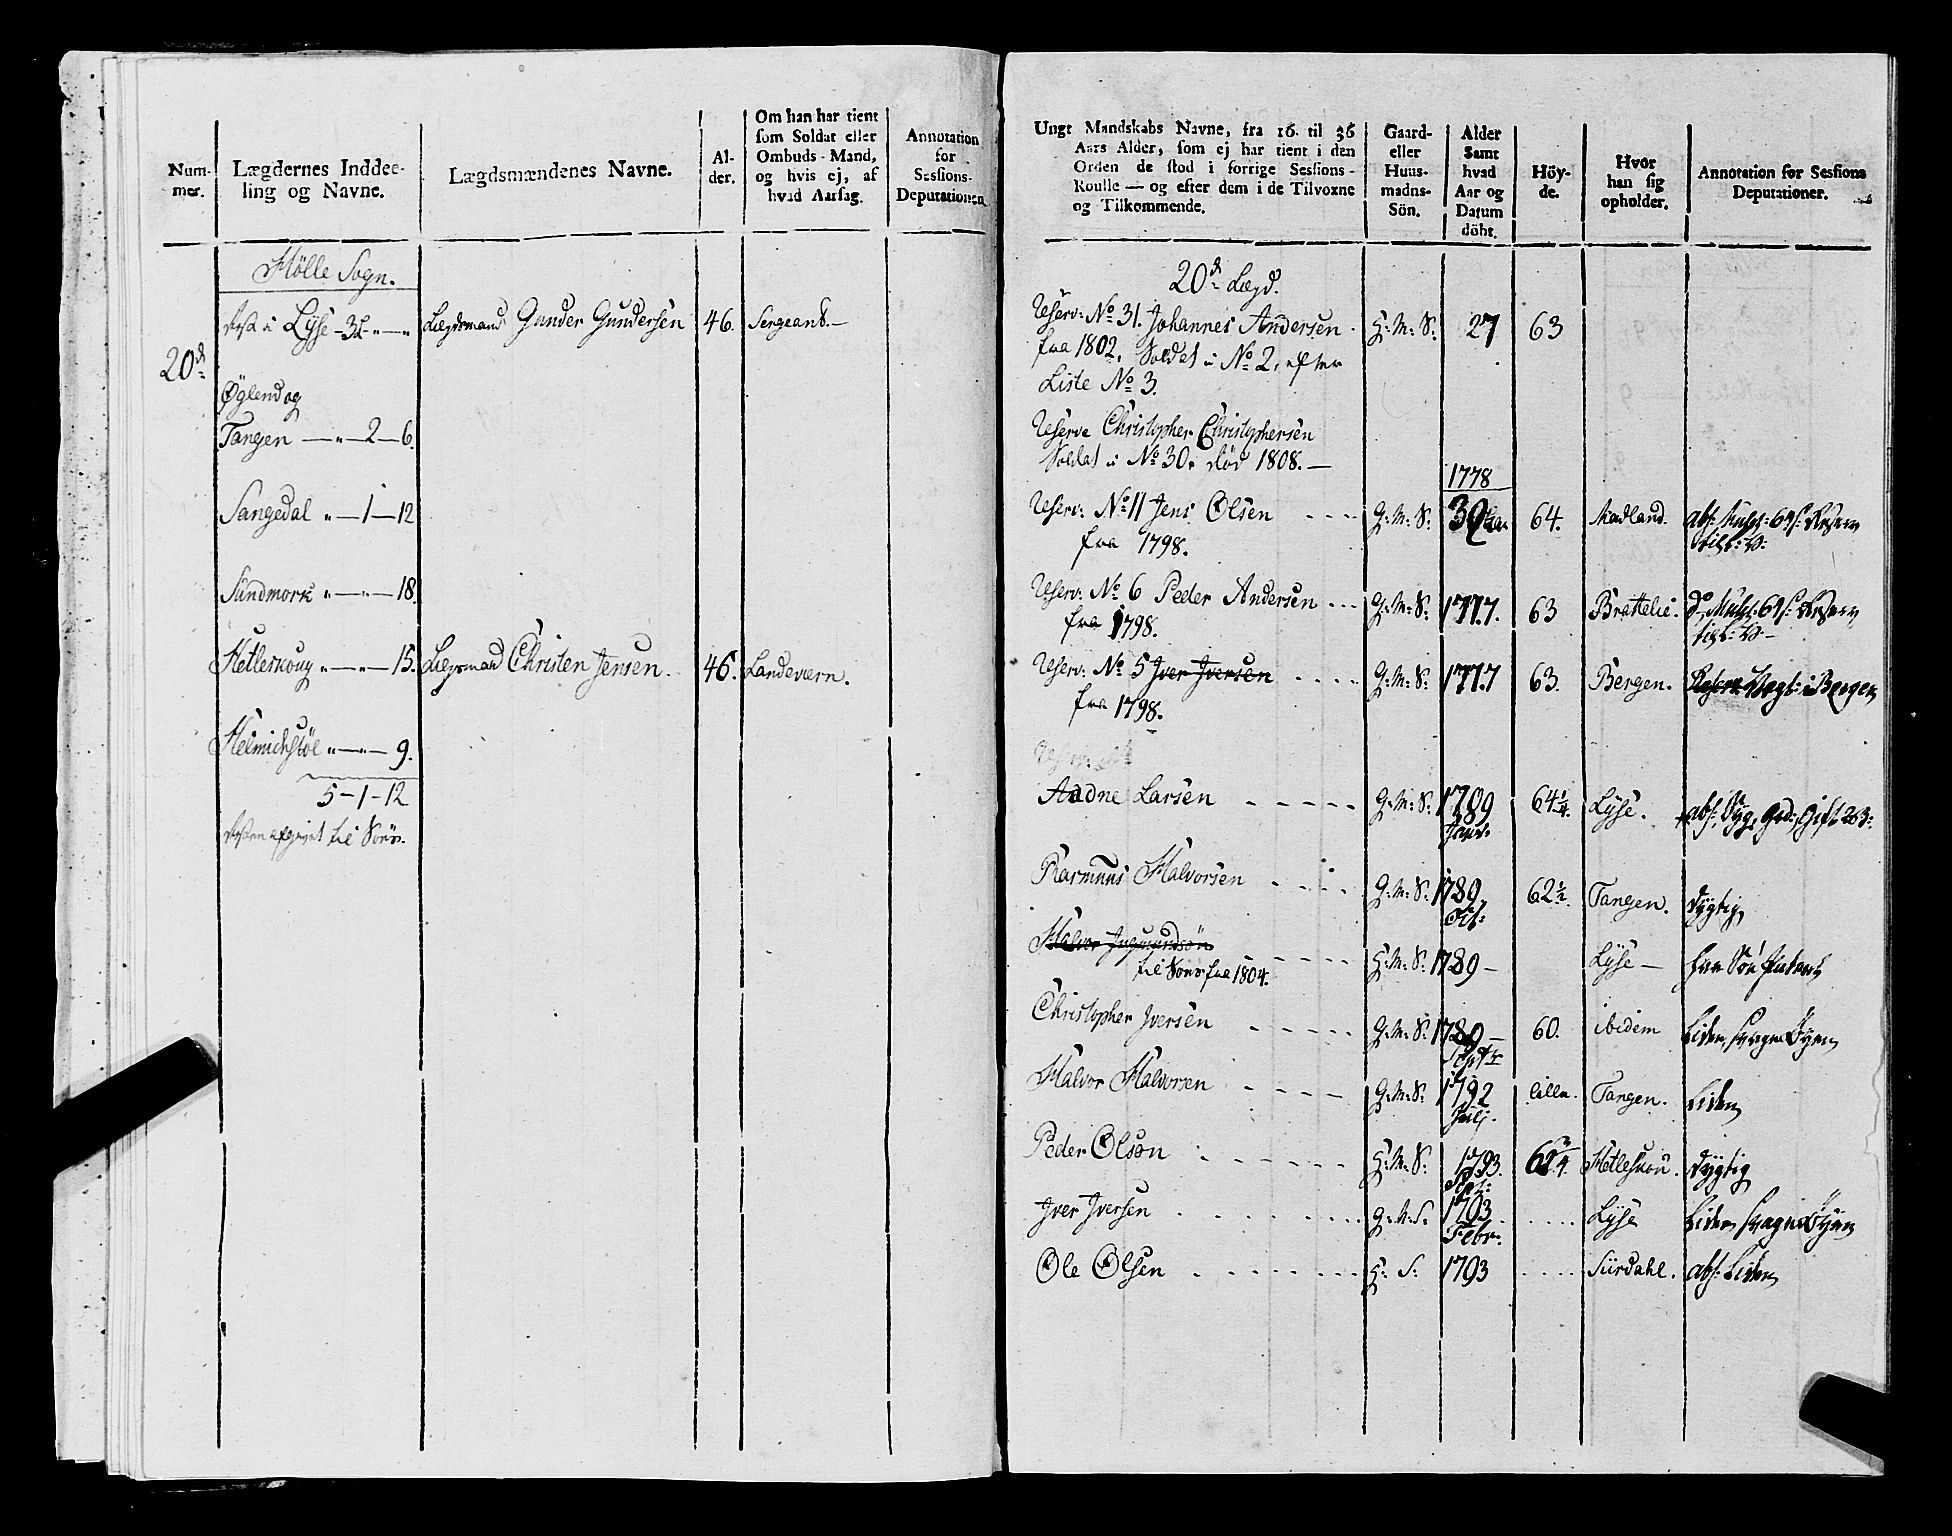 Num-
mer.
Lægdernes Inddee-
ling og Navne.
Lægdsmændenes Navne.
Al-
der.
Om han har tient
som Soldat eller
Ombuds-Mand,
og hvis ej, af
hvad Aarsag.
Annotation
for
Sessions-
Deputationen.
Hölle Sogn.
20de
Lyse
Lægdsmand Gunder Gundersen 46. Sergeant.—
Øglend og
Tangen — „ — 2 — 6.
Sangedal „ — 1 — 12
Sundmork „ — „ — 18.
Hetleskoug „ — „ — 15. Lægdsmand Christen Jensen. 46. Landeværn.
Helmichstöl „ — „ — 9.
5 — 1 — 12
til
Ungt Mandskabs Navne, fra 16. til 36
Aars Alder, som ej har tient i den
Orden de stod i forrige Sessions-
Roulle — og efter dem i de Tilvoxne
og Tilkommende.
Gaard-
eller
Huus-
mands-
Sön.
Alder
Samt
hvad
Aar og
Datum
döbt.
Höy-
de.
Hvor
han sig
opholder.
Annotation for Sessions
Deputationer.
20de Lægd.
Reserv: No 31. Johannes Andersen H: M: S: 27 63
fra 1802, Soldat i No 2, efter
Liste No 3.
Reserve Christopher Christophersen
Soldat i No 30. död 1808.—
1778
Reserv: No 11 Jens Olsen G: M: S: 30 64. Madland.
fra 1798.
Reserv: No 6 Peder Andersen G: M: S: 1777. 63 Brattelie.
fra 1798.
Reserv: No 5 Iver Iversen G: M: S: 1777 63. Bergen.
fra 1798.
Aadne Larsen G: M: S: 1789 64 1/4. Lyse.
Rasmus Halvorsen G: M: S: 1789. 62 1/2. Tangen. Dygtig
Oct:
Halvor G: M: S: 1789 — Lyse —
til fra 1804.
Christopher Iversen G: M: S: 1789 — 60. ibidem Liden, svage Öyne
Septr
Halvor Halvorsen G: M: S: 1792 lille. Tangen. Liden
Julj.
Peder Olson H: M: S: 1793. Hetleskou. Dygtig
Sept:
Iver Iversen G: M: S: 1793 Lyse Liden svage Öyne
Febr:
Ole Olsen H: S: 1793 Siirdahl. abs: Liden